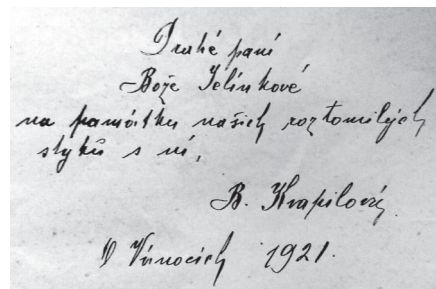 Drahé paní
Bože Jelínkové
na památku našich roztomilých
styků s ní,
B. Kvapilová.
O Vánocích 1921.